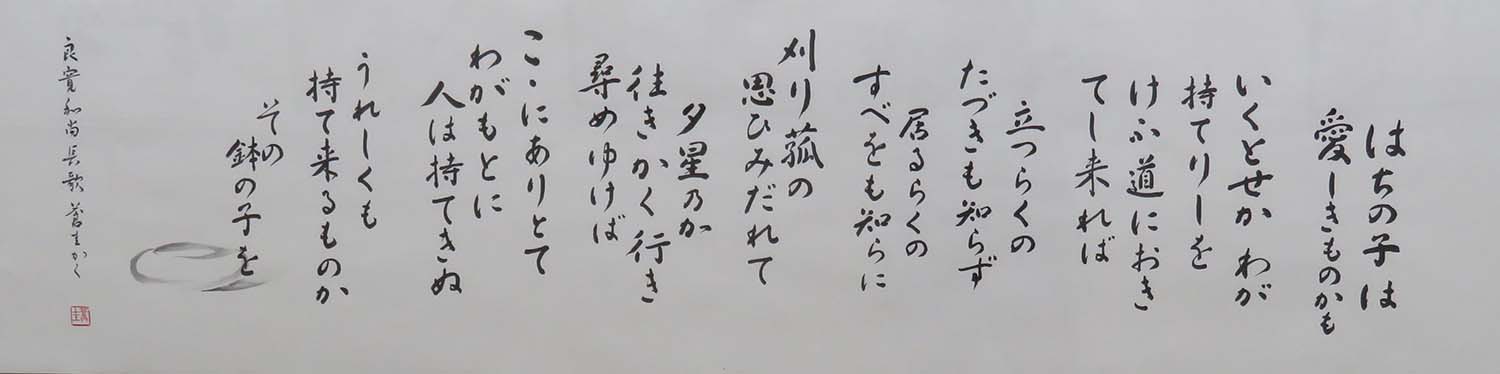 はちの子は
愛しきものかも
いくとせか わが
持てりしを
けふ道におき
てし来れば
立つらくの
たづきも知らず
居るらくの
すべをも知らに
刈り菰の
思ひみだれて
夕星乃か
往きかく行き
尋めゆけば
こゝにありとて
わがもとに
人は持てきぬ
うれしくも
持て来るものか
その
鉢の子を
良寛和尚長歌 蒼生かく